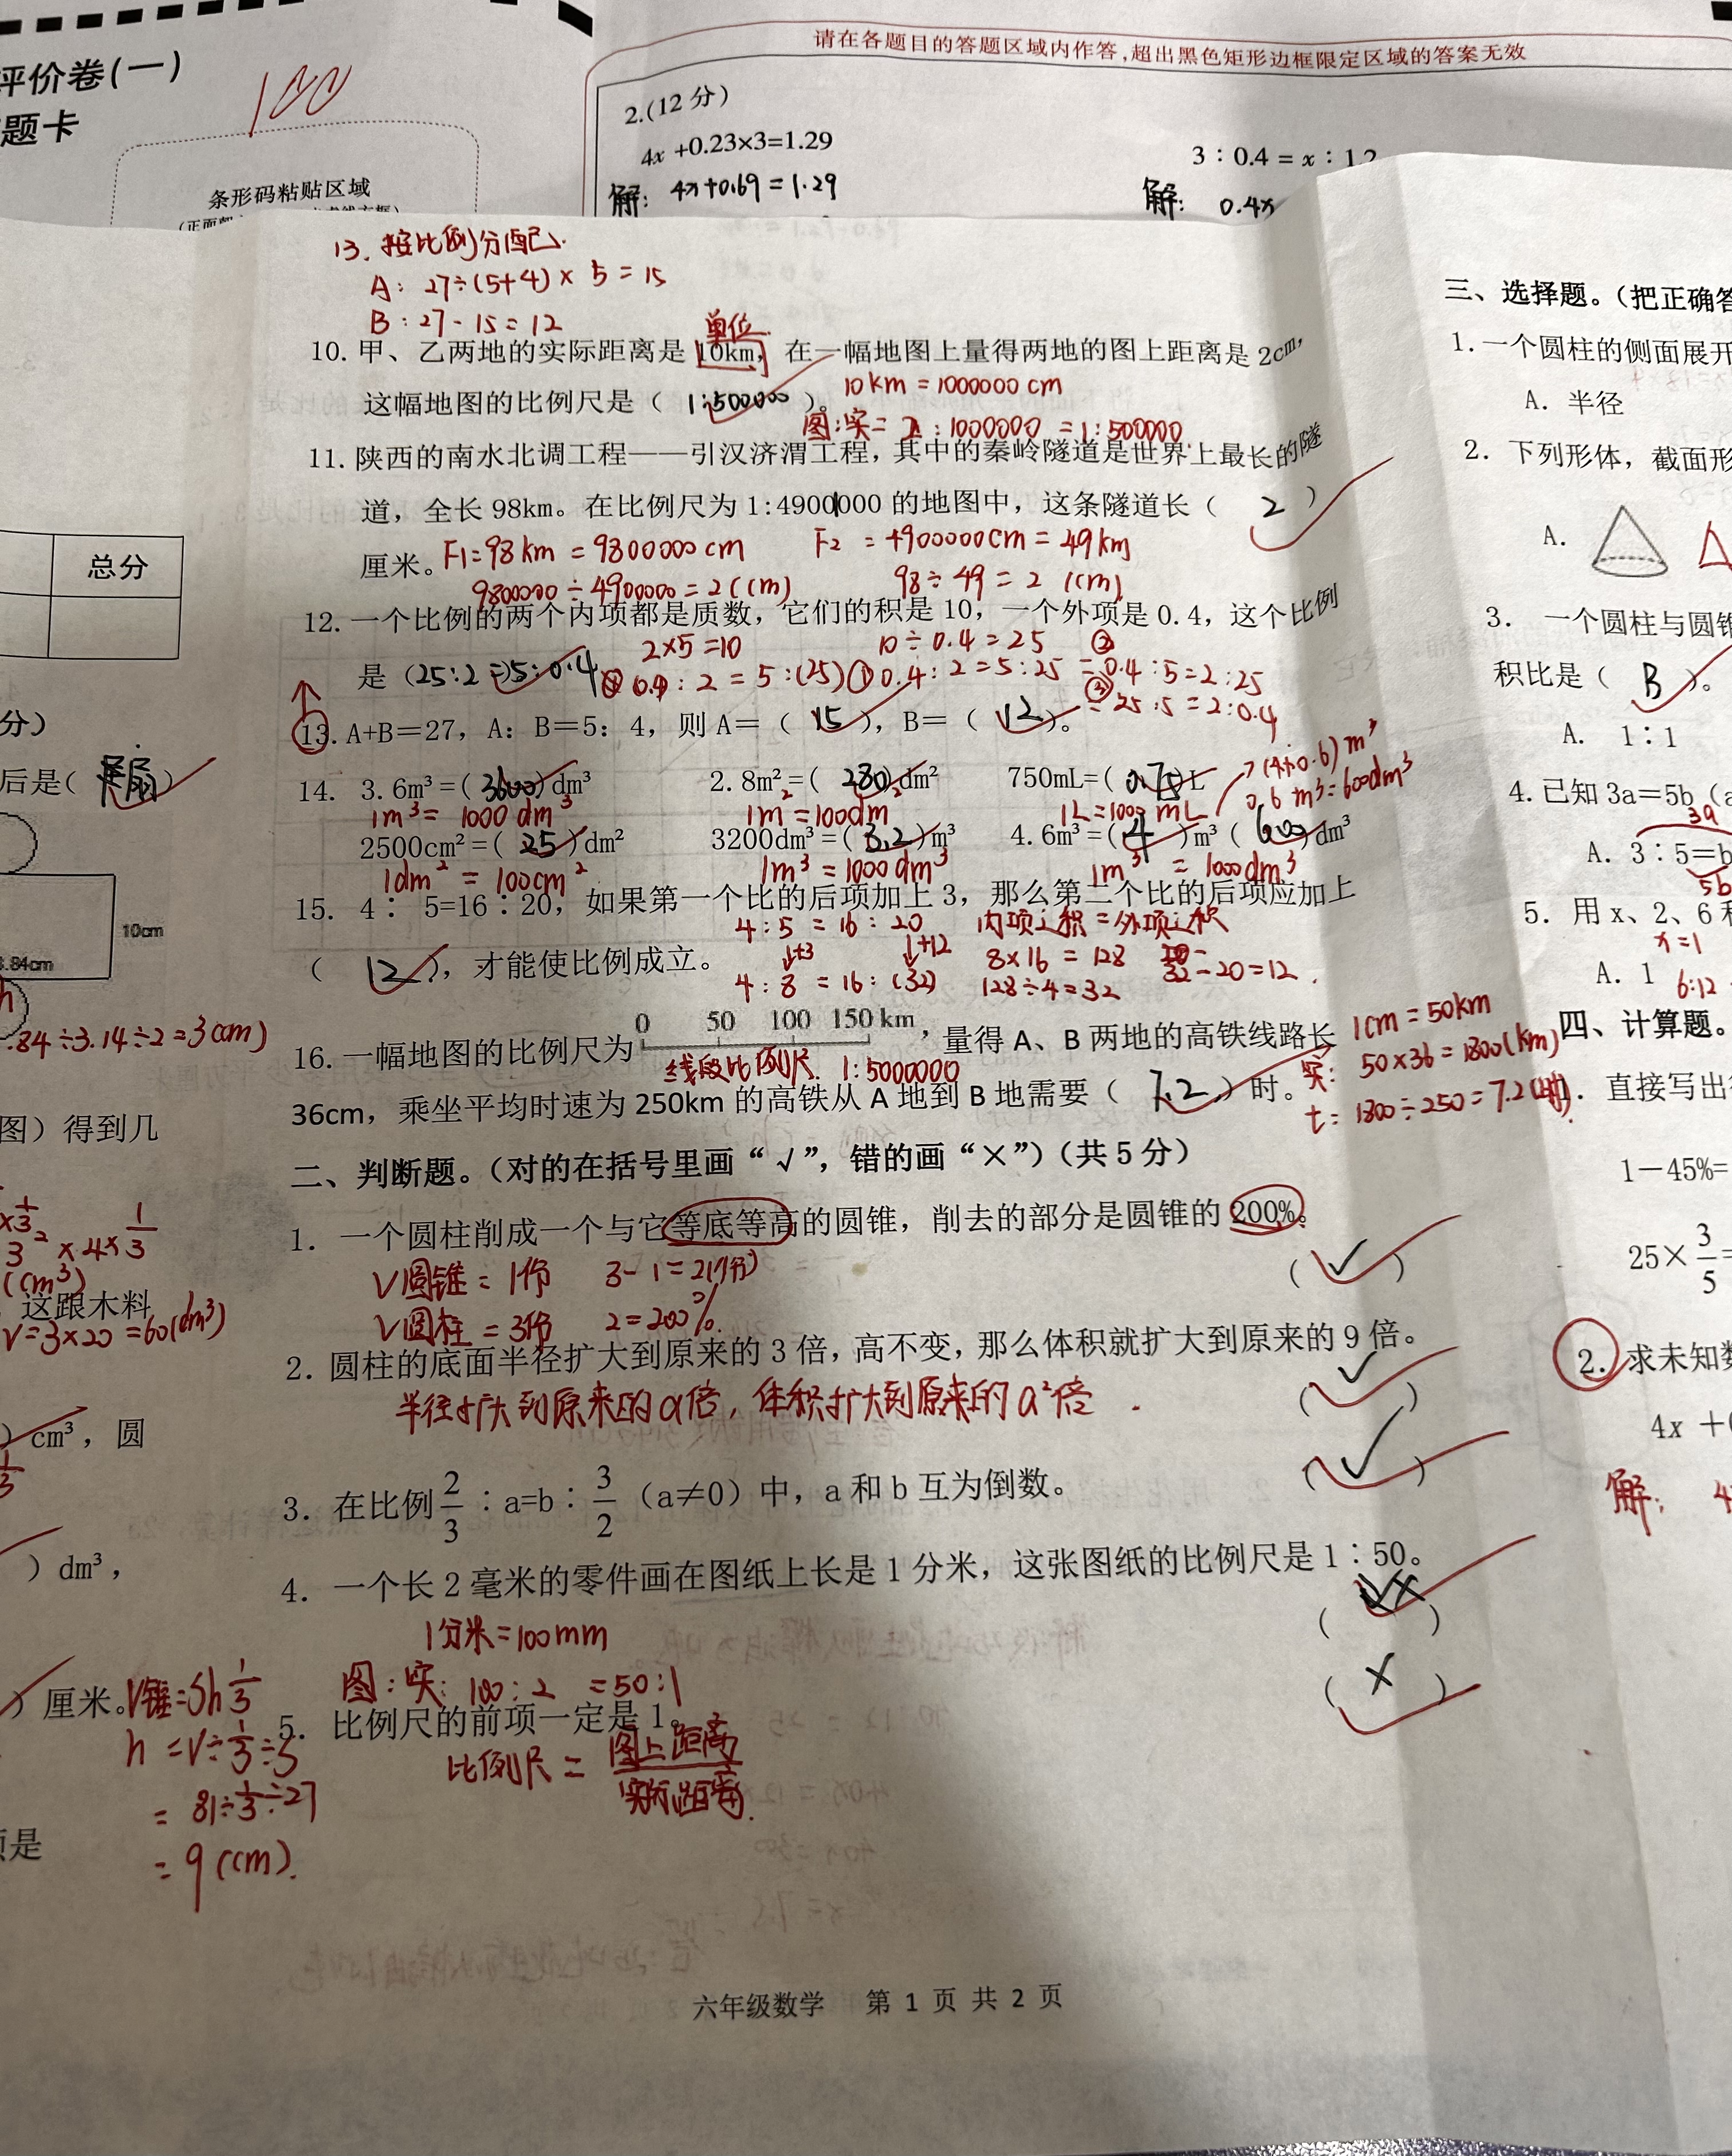 评价卷(一)
题卡
100
条形码粘贴区域
请在各题目的答题区域内作答,超出黑色矩形边框限定区域的答案无效
2.(12 分)
4x +0.23×3=1.29
3∶0.4 = x∶1.2
解: 4x+0.69=1.29
解: 0.4x
13. 按比例分配.
A: 27÷(5+4)×5=15
B: 27-15=12
单位
10. 甲、乙两地的实际距离是 10km, 在一幅地图上量得两地的图上距离是 2cm,
这幅地图的比例尺是 ( 1:500000 )。 10km=1000000cm
图:实=2:1000000=1:500000.
11. 陕西的南水北调工程——引汉济渭工程, 其中的秦岭隧道是世界上最长的隧
道, 全长 98km。在比例尺为 1:4900000 的地图中, 这条隧道长 ( 2 )
厘米。 F1=98km=9800000cm F2 =4900000cm=49km
9800000÷4900000=2(cm) 98÷49=2 (cm)
12. 一个比例的两个内项都是质数, 它们的积是 10, 一个外项是 0.4, 这个比例
2×5=10 10÷0.4=25 ②
是 (25:2=5:0.4 ④0.4:2=5:(25) ①0.4:2=5:25 =0.4:5=2:25
③=25:5=2:0.4
13. A+B=27, A: B=5: 4, 则 A= ( 15 ), B= ( 12 )。
→(4+0.6)m³
14. 3.6m³=( 3600 )dm³ 2.8m²=( 280 )dm² 750mL=( 0.75 )L
0.6m³=600dm³
1m³=1000dm³ 1m²=100dm² 1L=1000mL
2500cm²=( 25 )dm² 3200dm³=( 3.2 )m³ 4.6m³=( 4 )m³ ( 600 )dm³
1dm²=100cm² 1m³=1000dm³ 1m³=1000dm³
15. 4∶5=16∶20, 如果第一个比的后项加上 3, 那么第二个比的后项应加上
4:5=16:20 内项之积=外项之积
( 12 ), 才能使比例成立。 ↓+3 ↓+12 8×16=128 32-20=12.
4:8=16:(32) 128÷4=32
0 50 100 150 km
16. 一幅地图的比例尺为 , 量得 A、B 两地的高铁线路长
线段比例尺. 1:5000000
1cm=50km
实: 50×36=1800(km)
t=1800÷250=7.2(时).
36cm, 乘坐平均时速为 250km 的高铁从 A 地到 B 地需要 ( 7.2 ) 时。
二、判断题。(对的在括号里画“√”, 错的画“×”)(共 5 分)
1. 一个圆柱削成一个与它等底等高的圆锥, 削去的部分是圆锥的 200%。
( √ )
V圆锥=1份 3-1=2(份)
V圆柱=3份 2=200%.
2. 圆柱的底面半径扩大到原来的 3 倍, 高不变, 那么体积就扩大到原来的 9 倍。
( √ )
半径扩大到原来的a倍, 体积扩大到原来的a²倍.
3. 在比例 2/3 ∶a=b∶ 3/2 (a≠0) 中, a 和 b 互为倒数。
( √ )
4. 一个长 2 毫米的零件画在图纸上长是 1 分米, 这张图纸的比例尺是 1∶50。
( × )
1分米=100mm
图:实: 100:2 =50:1
5. 比例尺的前项一定是 1。
( × )
比例尺= 图上距离/实际距离.
六年级数学 第 1 页 共 2 页
总分
分)
后是( 扇 )
10cm
.84cm
.84÷3.14÷2=3(cm)
图) 得到几
×1/3
3²×4×1/3
(cm³)
这跟木料
V=3×20=60(dm³)
) cm³, 圆
) dm³,
) 厘米。 V锥=Sh1/3
h=V÷1/3÷S
=81÷1/3÷27
=9(cm).
项是
三、选择题。(把正确答
1. 一个圆柱的侧面展开
A. 半径
2. 下列形体, 截面形
A.
3. 一个圆柱与圆锥
积比是 ( B )。
A. 1∶1
4. 已知 3a=5b (a
3a
A. 3∶5=b
5b
5. 用 x、2、6 和
x=1
A. 1 6:12
四、计算题。
1. 直接写出得
1-45%=
25× 3/5 =
2. 求未知数
4x +0
解: 4